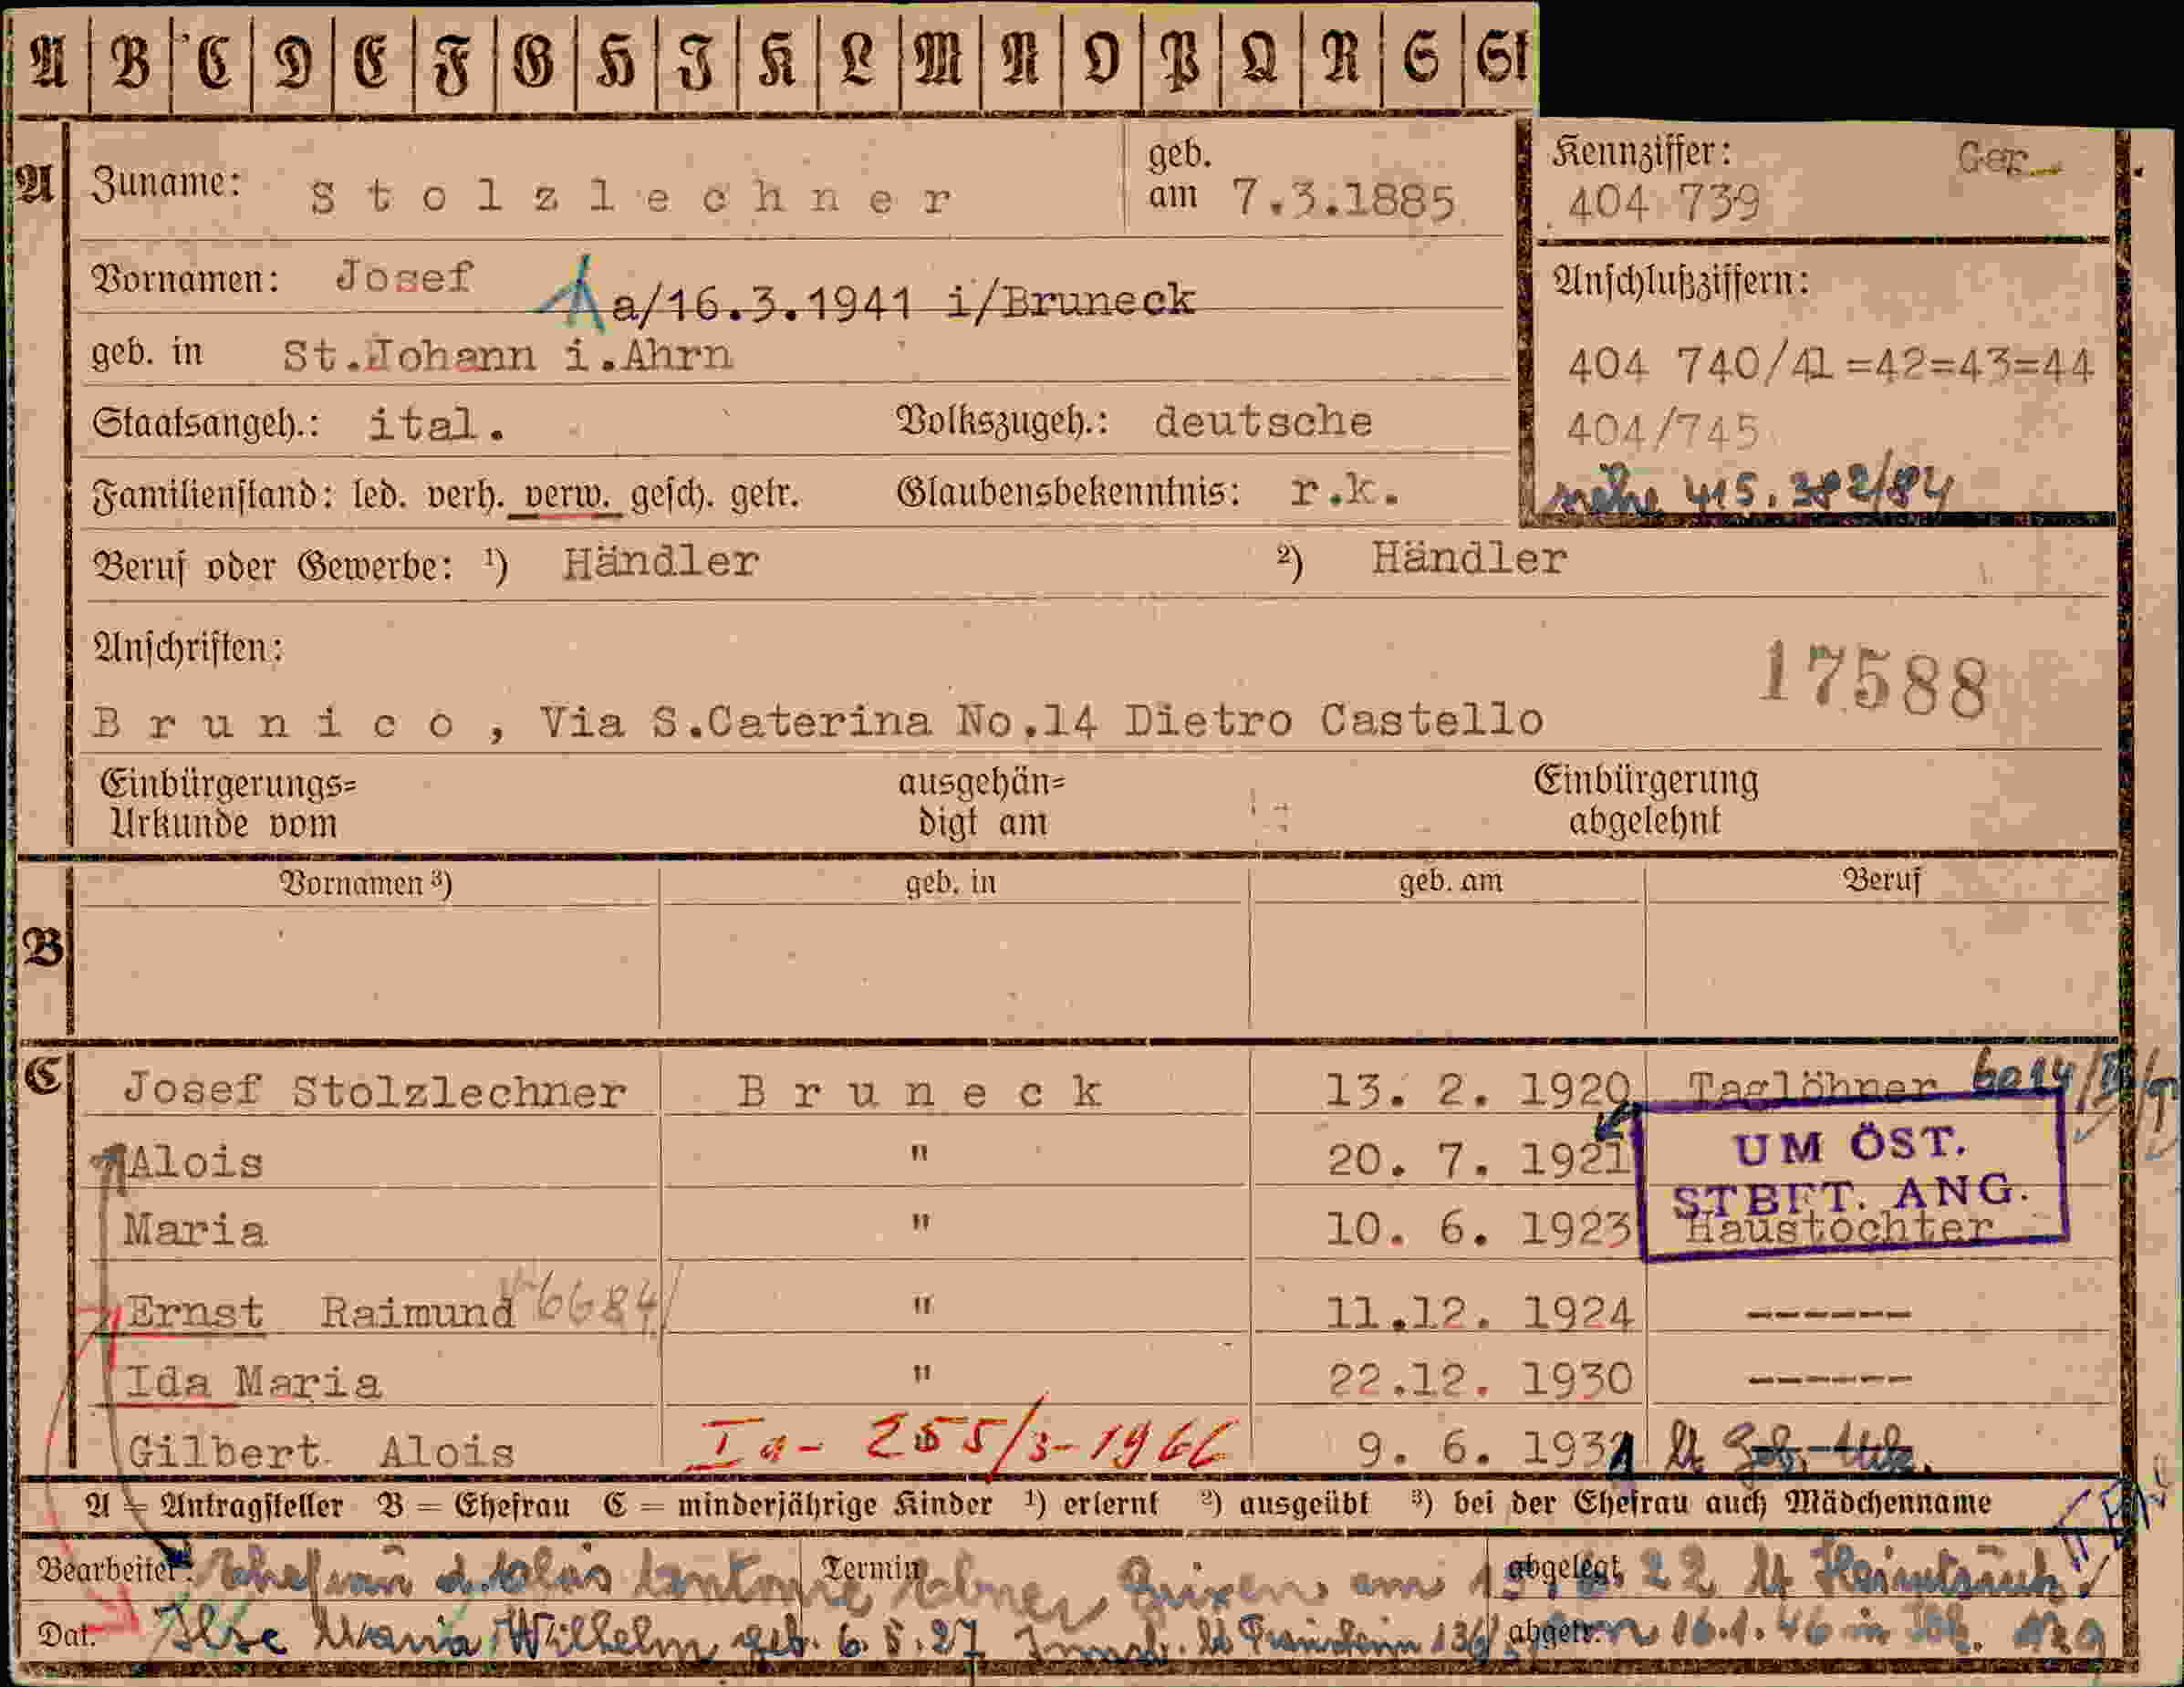 A B C D E F G H J K L M N O P Q R S St
A Zuname: Stolzlechner geb. am 7.3.1885
Kennziffer: Ger.
404 739
Vornamen: Josef a/16.3.1941 i/Bruneck
Anschlußziffern:
geb. in St.Johann i.Ahrn
404 740/41=42=43=44
Staatsangeh.: ital. Volkszugeh.: deutsche
404/745
Familienstand: led. verh. verw. gesch. getr. Glaubensbekenntnis: r.k.
siehe 415.382/84
Beruf oder Gewerbe: ¹) Händler ²) Händler
Anschriften:
17588
Brunico, Via S.Caterina No.14 Dietro Castello
Einbürgerungs= Urkunde vom ausgehän= digt am Einbürgerung abgelehnt
Vornamen ³) geb. in geb. am Beruf
B
C Josef Stolzlechner Bruneck 13. 2. 1920 Taglöhner
Alois " 20. 7. 1921
UM ÖST.
STBFT. ANG.
Maria " 10. 6. 1923 Haustochter
Ernst Raimund 6684 " 11.12. 1924 ------
Ida Maria " 22.12. 1930 ------
Gilbert Alois Ia- 255/3-1966 9. 6. 1931 lt Geb.-Urk.
A = Antragsteller B = Ehefrau C = minderjährige Kinder ¹) erlernt ²) ausgeübt ³) bei der Ehefrau auch Mädchenname
Bearbeiter: Ehefrau d. Alois Antonie Termin Brixen am abgelegt 22 lt
Dat. Ilse Maria Wilhelm geb. 6.8.27 Innsb. lt abgetr. 16.1.46 in